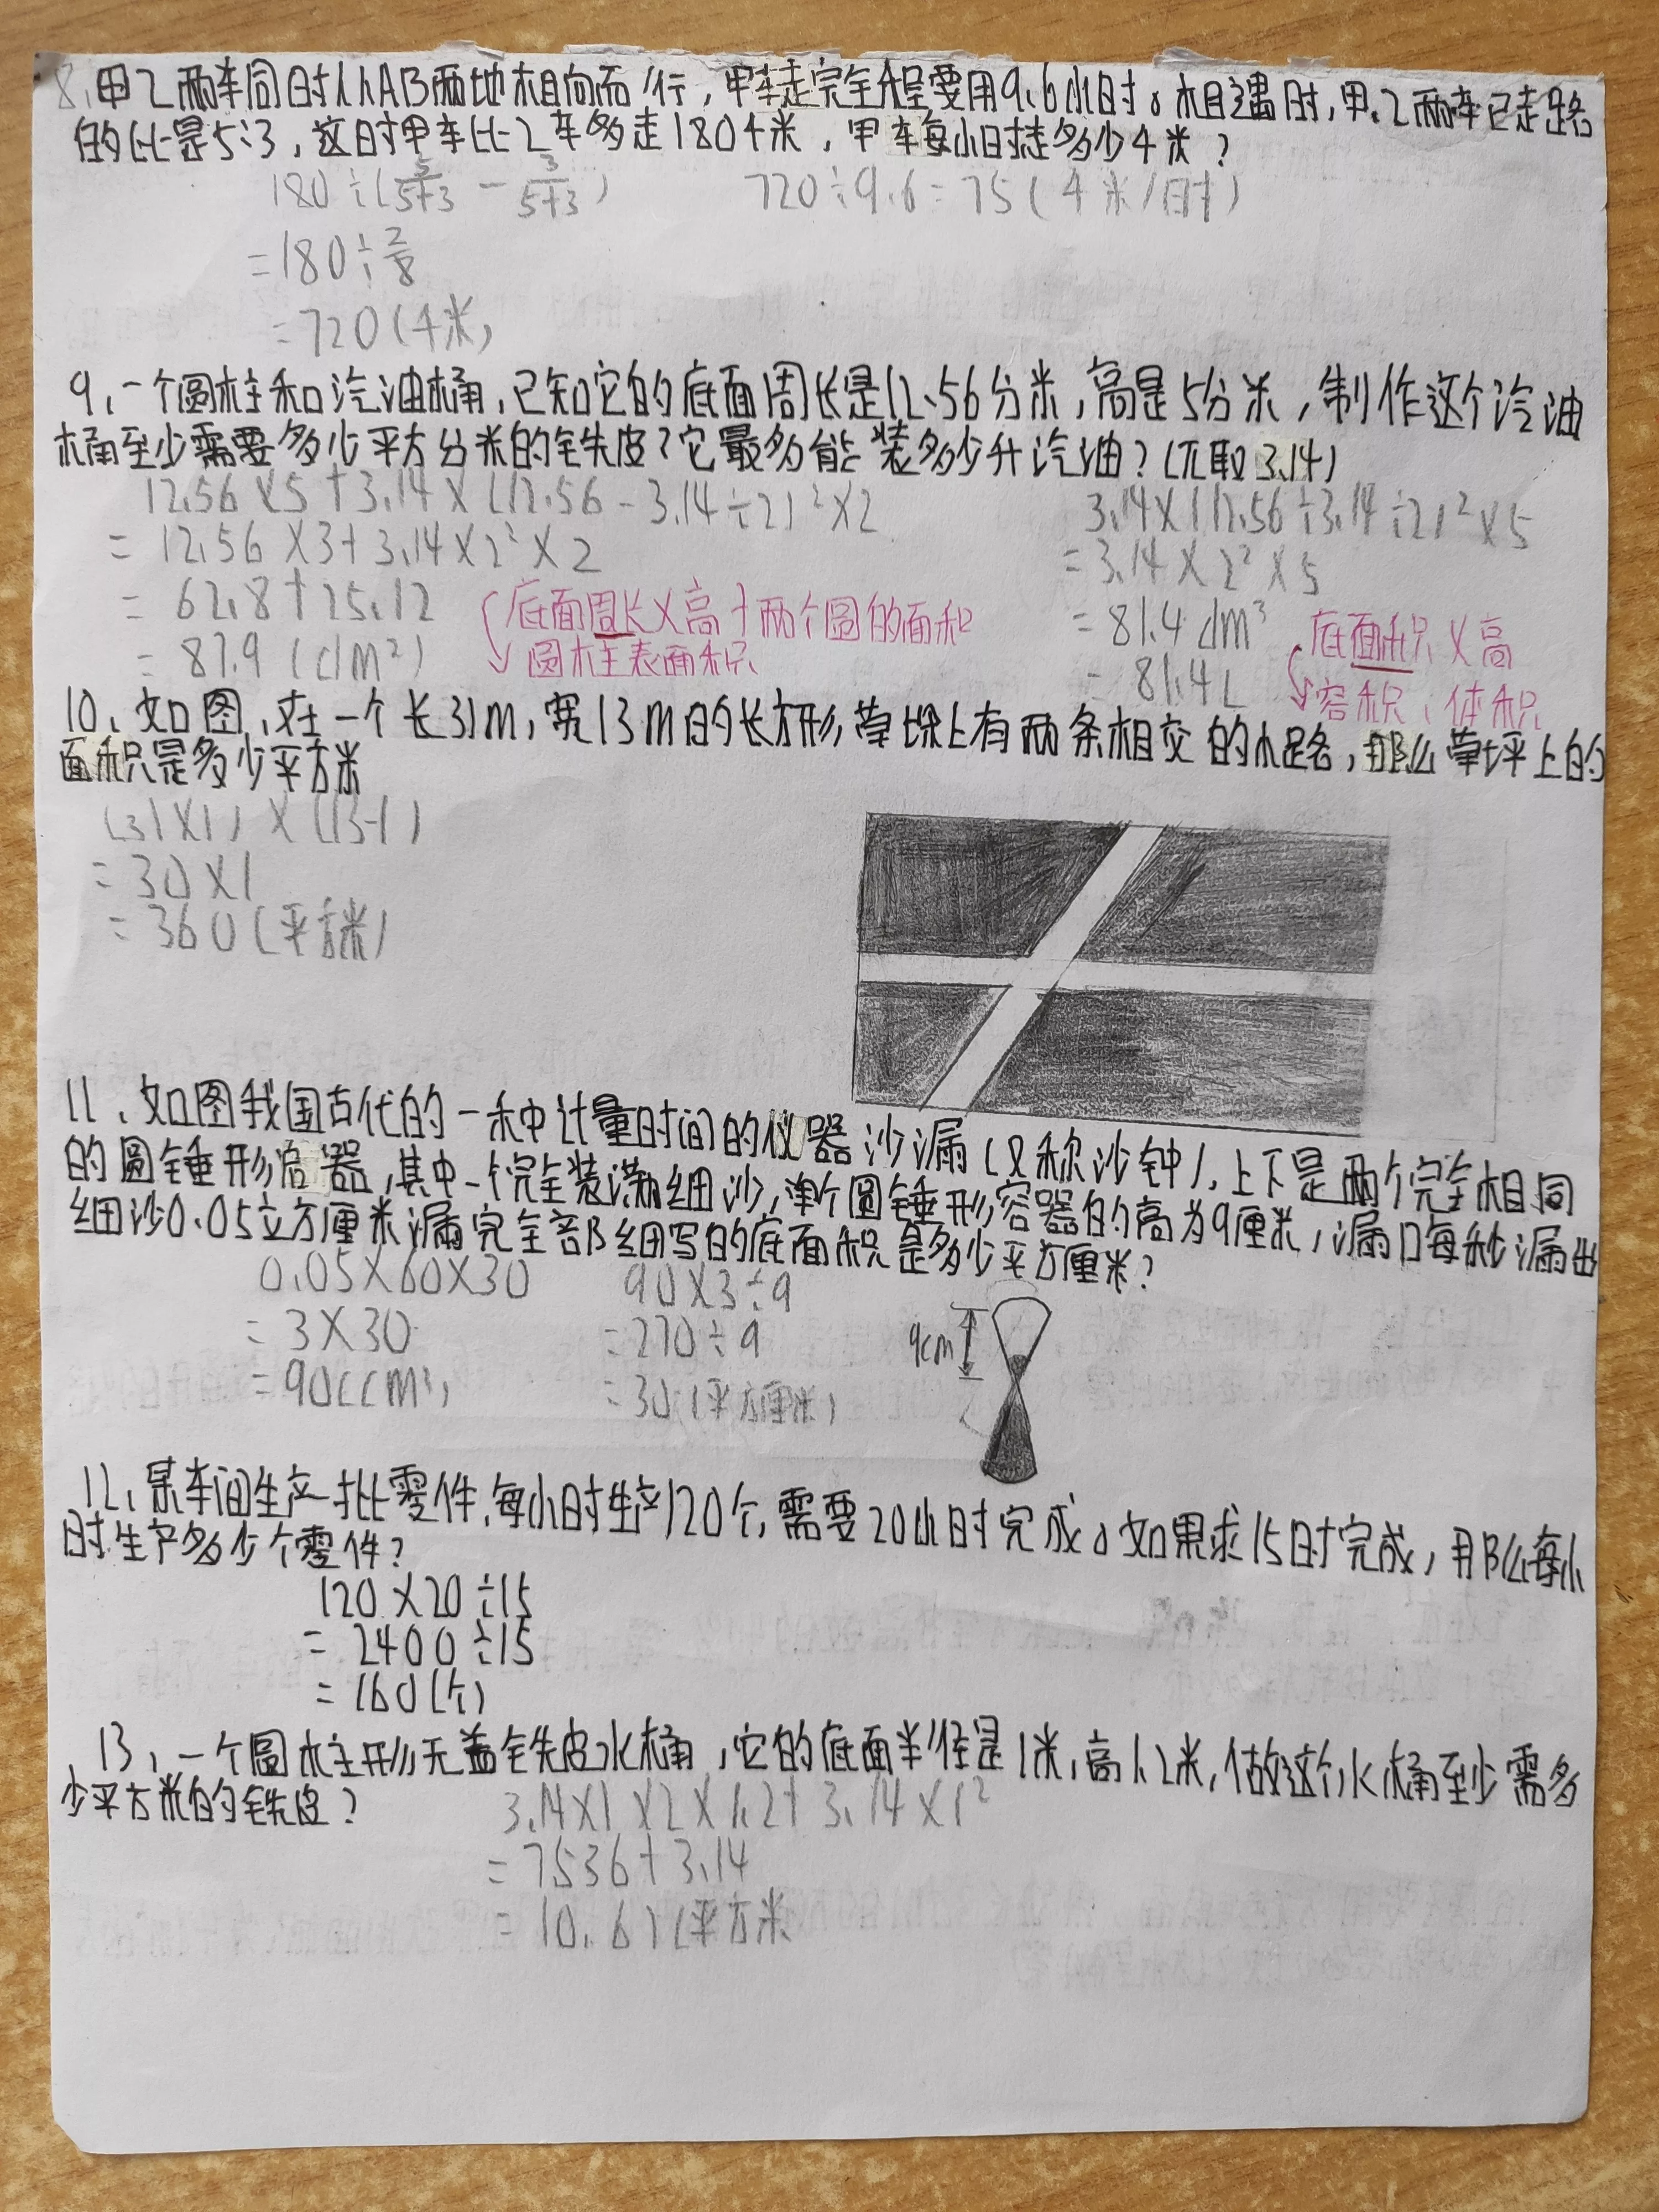 8、甲乙两车同时从AB两地相向而行,甲车走完全程要用9.6小时。相遇时,甲、乙两车已走路
的比是5:3,这时甲车比乙车多走180千米,甲车每小时走多少千米?
180÷(5/5+3 - 3/5+3) 720÷9.6=75(千米/时)
=180÷2/8
=720(千米)
9、一个圆柱和汽油桶,已知它的底面周长是12.56分米,高是5分米,制作这个汽油
桶至少需要多少平方分米的铁皮?它最多能装多少升汽油?(π取3.14)
12.56×5+3.14×(12.56-3.14÷2)²×2
3.14×(12.56÷3.14÷2)²×5
=12.56×3+3.14×2²×2
=3.14×2²×5
=62.8+25.12
=81.4dm³
=87.9(dm²)
=81.4L
底面周长×高+两个圆的面积
圆柱表面积
底面积×高
容积、体积
10、如图,在一个长31m,宽13m的长方形,草坪上有两条相交的小路,那么草坪上的
面积是多少平方米
(31×1)×(13-1)
=30×1
=360(平方米)
11、如图我国古代的一种计量时间的仪器沙漏(又称沙钟),上下是两个完全相同
的圆锤形容器,其中一个完全装满细沙,单个圆锤形容器的高为9厘米,漏口每秒漏出
细沙0.05立方厘米漏完全部细写的底面积是多少平方厘米?
0.05×60×30 90×3÷9
=3×30 =270÷9
=90(cm³) =30(平方厘米)
9cm
12、某车间生产一批零件,每小时生产120个,需要20小时完成。如果求15时完成,那么每小
时生产多少个零件?
120×20÷15
=2400÷15
=160(个)
13、一个圆木主形无盖铁皮水桶,它的底面半径是1米,高1.2米,做这个水桶至少需多
少平方米的铁皮?
3.14×1×2×1.2+3.14×1²
=7.536+3.14
=10.67(平方米